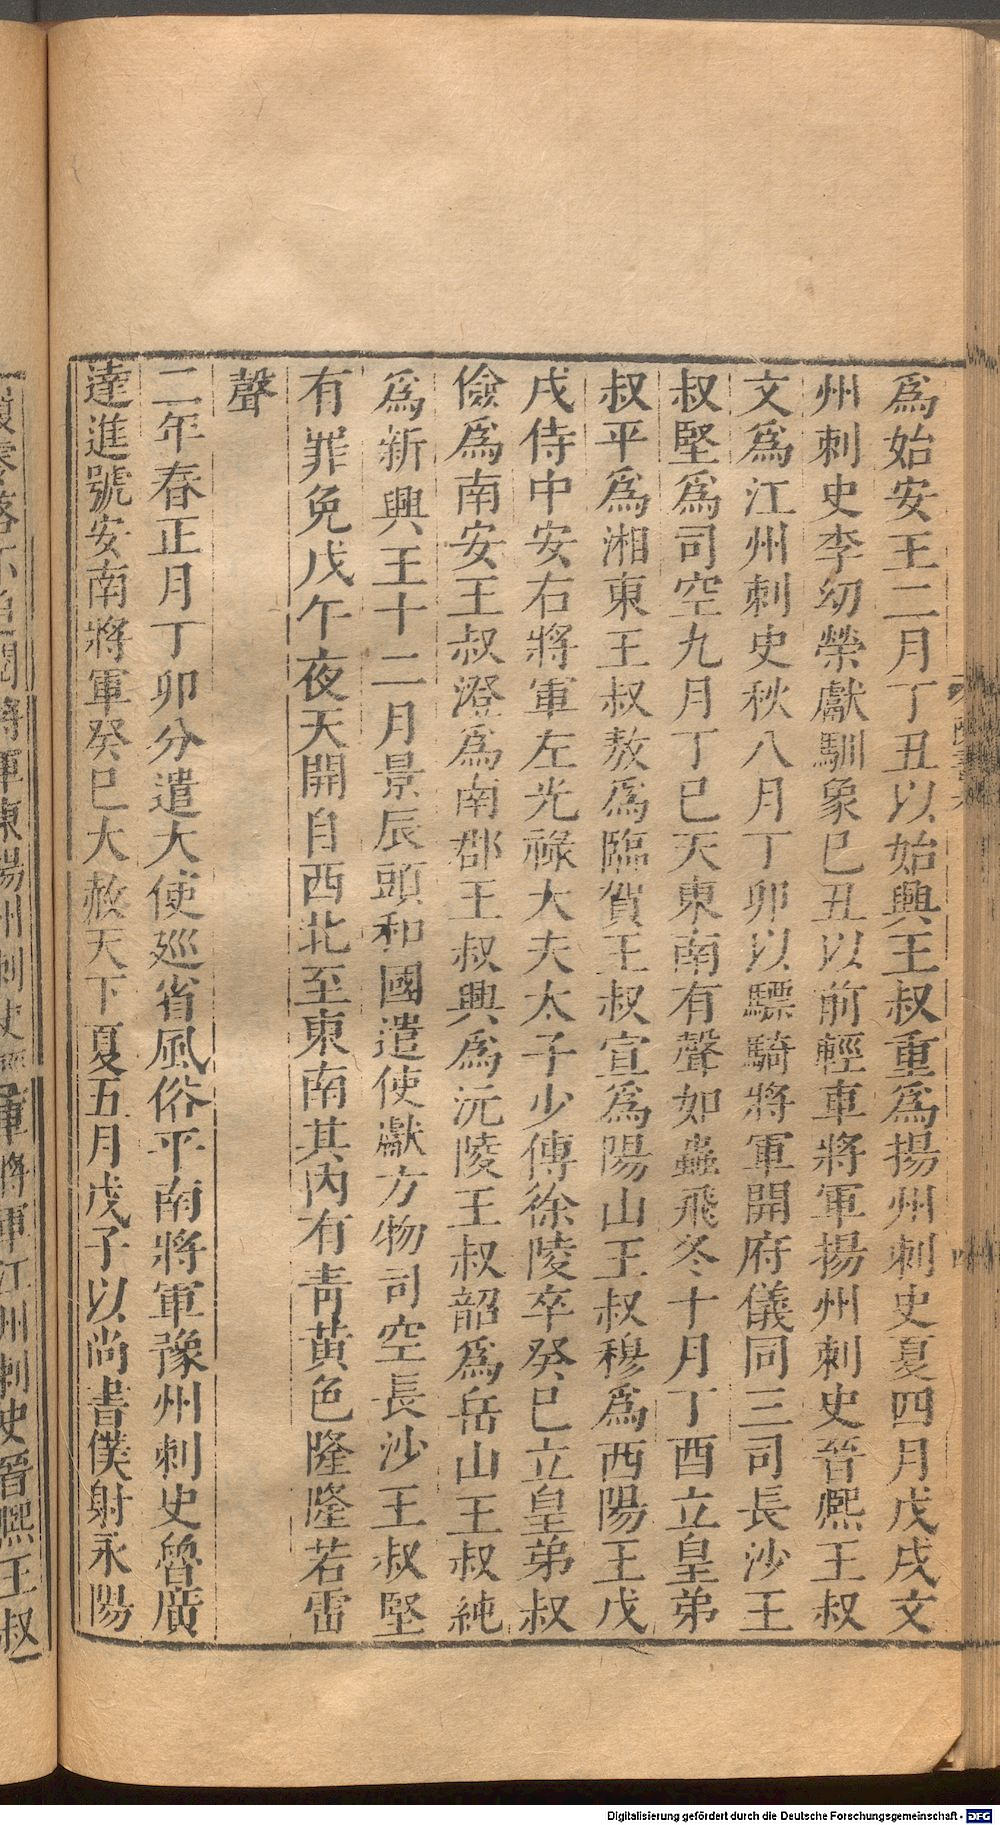 爲始安王二月丁丑以始興王叔重爲揚州刺史夏四月戊戌文
州刺史李幼榮獻馴象己丑以前輕車將軍揚州刺史晉熙王叔
文爲江州刺史秋八月丁卯以驃騎將軍開府儀同三司長沙王
叔堅爲司空九月丁巳天東南有聲如蟲飛冬十月丁酉立皇弟
叔平爲湘東王叔敖爲臨賀王叔宣爲陽山王叔穆爲西陽王戊
戌侍中安右將軍左光祿大夫太子少傅徐陵卒癸巳立皇弟叔
儉爲南安王叔澄爲南郡王叔興爲沅陵王叔韶爲岳山王叔純
爲新興王十二月景辰頭和國遣使獻方物司空長沙王叔堅
有罪免戊午夜天開自西北至東南其內有靑黃色隆隆若雷
聲
二年春正月丁卯分遣大使廵省風俗平南將軍豫州刺史魯廣
達進號安南將軍癸巳大赦天下夏五月戊子以尚書僕射永陽
將軍東陽州刺史
軍將軍江州刺史晉熙王叔
Digitalisierung gefördert durch die Deutsche Forschungsgemeinschaft - DFG